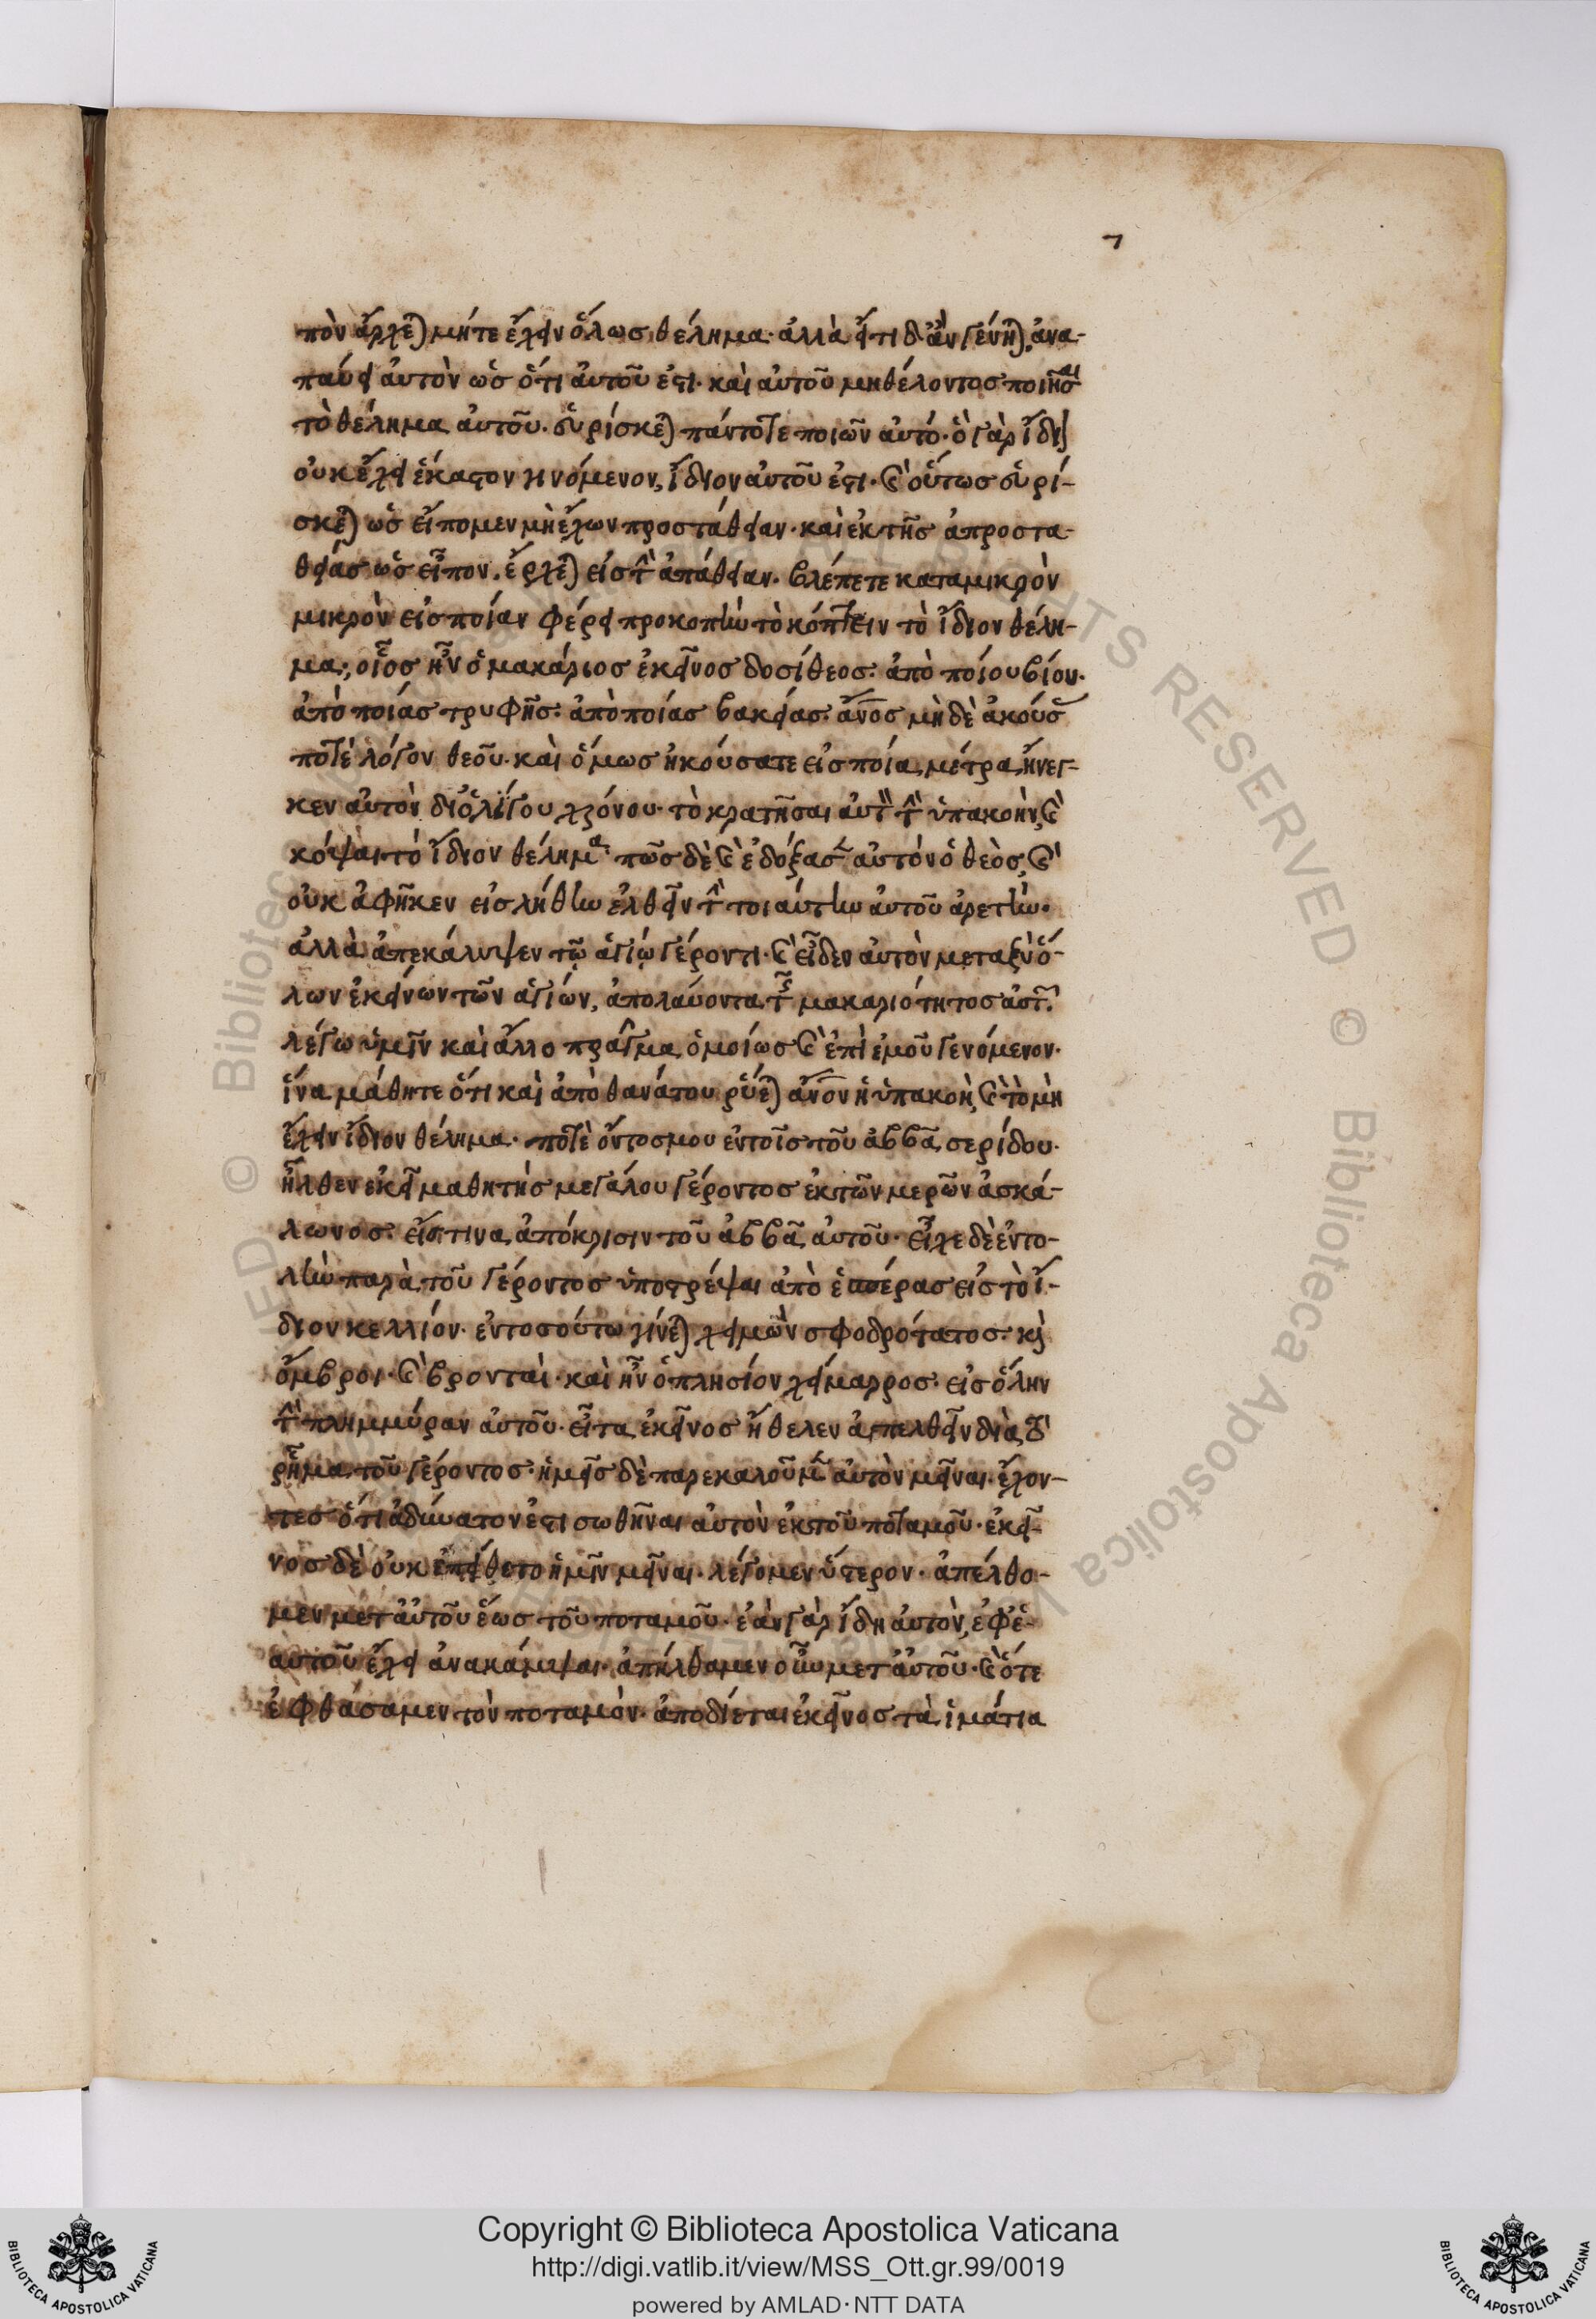 7
πὸν ἄρχεται μήτε ἔχειν ὅλως θέλημα· ἀλλὰ εἴτι δ' ἂν γένηται, ἀνα-
παύει αὐτὸν ὡς ὅτι αὐτοῦ ἐστι· καὶ αὐτοῦ μὴ θέλοντος ποιῆσαι
τὸ θέλημα αὐτοῦ· εὑρίσκεται πάντοτε ποιῶν αὐτό· ὁ γὰρ ἴδιον
οὐκ ἔχει ἕκαστον γινόμενον, ἴδιον αὐτοῦ ἐστι· καὶ οὕτως εὑρί-
σκεται ὡς εἴπομεν μὴ ἔχων προσπάθειαν· καὶ ἐκ τῆς ἀπροσπα-
θείας ὡς εἶπον, ἔρχεται εἰς τὴν ἀπάθειαν· βλέπετε καταμικρὸν
μικρὸν εἰς ποίαν φέρει προκοπὴν τὸ κόπτειν τὸ ἴδιον θέλη-
μα; οἷος ἦν ὁ μακάριος ἐκεῖνος δοσίθεος· ἀπὸ ποίου βίου·
ἀπὸ ποίας τρυφῆς· ἀπὸ ποίας βακείας· ἄνος μὴ δὲ ἀκούσας
ποτὲ λόγον θεοῦ· καὶ ὅμως ἠκούσατε εἰς ποία μέτρα ἤνεγ-
κεν αὐτὸν δι' ὀλίγου χρόνου· τὸ κρατῆσαι αὐτὸν τὴν ὑπακοὴν, καὶ
κόψαι τὸ ἴδιον θέλημα· πῶς δὲ καὶ ἐδόξασεν αὐτὸν ὁ θεὸς, καὶ
οὐκ ἀφῆκεν εἰς λήθην ἐλθεῖν τὴν τοιαύτην αὐτοῦ ἀρετὴν·
ἀλλὰ ἀπεκάλυψεν τῷ ἁγίῳ γέροντι· καὶ εἶδεν αὐτὸν μεταξὺ ὅ-
λων ἐκείνων τῶν ἁγίων, ἀπολαύοντα τῆς μακαριότητος αὐτῶν·
λέγω ὑμῖν καὶ ἄλλο πρᾶγμα ὁμοίως καὶ ἐπὶ ἐμοῦ γενόμενον·
ἵνα μάθητε ὅτι καὶ ἀπὸ θανάτου ῥύεται ἄνον ἡ ὑπακοὴ, καὶ τὸ μὴ
ἔχειν ἴδιον θέλημα· ποτὲ ὄντος μου ἐν τοῖς τοῦ ἀββᾶ σερίδου·
ἦλθεν ἐκεῖ μαθητὴς μεγάλου γέροντος ἐκ τῶν μερῶν ἀσκά-
λωνος· εἴς τινα ἀπόκρισιν τοῦ ἀββᾶ αὐτοῦ· εἶχε δὲ ἐντο-
λὴν παρὰ τοῦ γέροντος ὑποστρέψαι ἀπὸ ἑσπέρας εἰς τὸ ἴ-
διον κελλίον· ἐν τοσούτω γίνεται χειμὼν σφοδρότατος· καὶ
ὄμβροι· καὶ βρονταὶ· καὶ ἦν ὁ πλησίον χείμαρρος· εἰς ὅλην
τὴν πλημμύραν αὐτοῦ· εἶτα ἐκεῖνος ἤθελεν ἀπελθεῖν διὰ τὸ
ῥῆμα τοῦ γέροντος· ἡμεῖς δὲ παρεκαλοῦμεν αὐτὸν μεῖναι· ἔχον-
τες ὅτι ἀδύνατον ἐστι σωθῆναι αὐτὸν ἐκ τοῦ ποταμοῦ· ἐκεῖ-
νος δὲ οὐκ ἐπείθετο ἡμῖν μεῖναι· λέγομεν ὕστερον· ἀπέλθο-
μεν μετ' αὐτοῦ ἕως τοῦ ποταμοῦ· ἐὰν γὰρ ἴδη αὐτὸν, ἐφ' ἑ-
αυτοῦ ἔχει ἀνακάμψαι· ἀπήλθαμεν οὖν μετ' αὐτοῦ· καὶ ὅτε
ἐφθάσαμεν τὸν ποταμόν· ἀποδύεται ἐκεῖνος τὰ ἱμάτια
Copyright © Biblioteca Apostolica Vaticana
http://digi.vatlib.it/view/MSS_Ott.gr.99/0019
powered by AMLAD·NTT DATA
BIBLIOTECA APOSTOLICA VATICANA
BIBLIOTECA APOSTOLICA VATICANA